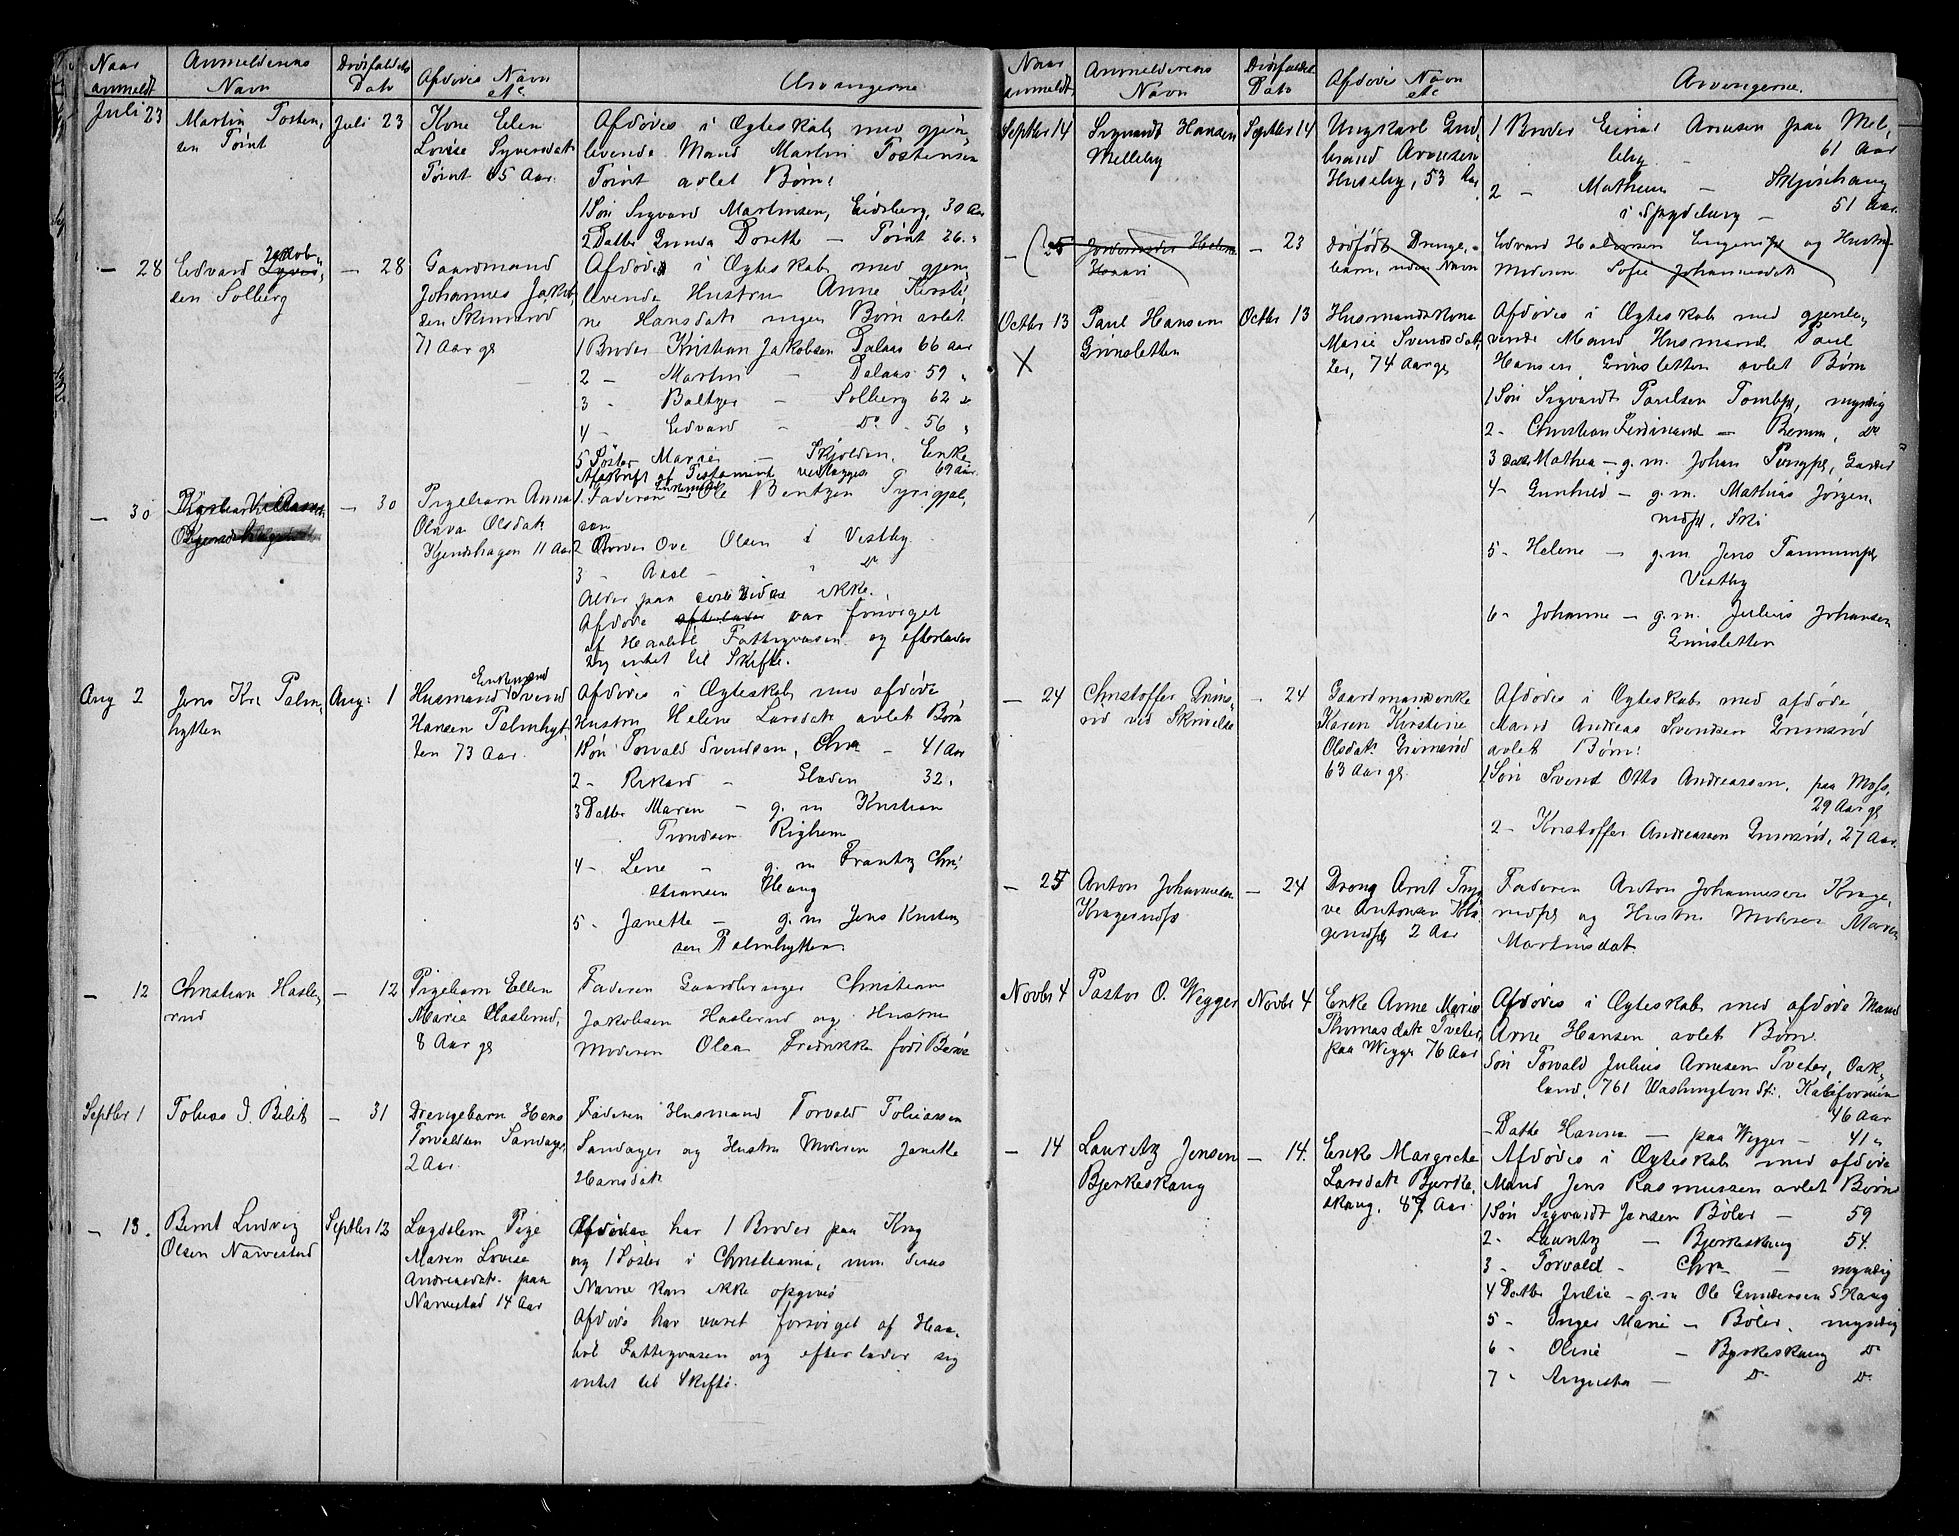 Naar anmeldt
Anmelderens Navn
Dødsfaldets Dato
Afdødes Navn etc
Arvingerne
Juli 23
Martin Tosten,
sen Tørut
Juli 23
Kone Elen
Lovise Syversdatr
Tørut 65 Aar.
Afdødes i Ægteskab med gjen,
levende Mand Martin Tostensen
Tørut avlet Børn:
1 Søn Sigvard Martinsen, Eidsberg, 30 Aar
2 Datter Gunda Dorethe — Tørut 26. "
— 28
Edvard Jakob,
sen Solberg
— 28
Gaardmand
Johannes Jakob
sen Skinnerød
71 Aar gl
Afdødes i Ægteskab med gjen,
levende Hustru Anne Kirsti,
ne Hansdatr ingen Børn avlet
1 Broder Kristian Jakobsen Dalaas 66 Aar
2 — Martin — Dalaas 59 "
3 - Baltzer - Solberg 62 "
4 - Edvard - Do - 56 "
5 Søster Marie — Skjolden, Enke
69 Aar.
Afskrift af Testament vedlægges
— 30
— 30
Pigebarn Anna
Olava Olsdatr
Kjendshagen 11 Aar
1. Faderen Enkemand Ole Bentzen Tyrigjel,
sen
2 Broder Ove Olsen i Vestby
3 - Axel - " Do
Alder paa ikke.
Afdøde var forsørget
af Haabøl Fattigvæsen og efterlader
sig intet til Skifte.
Aug 2
Jens Kr. Palm,
hytten
Aug: 1
Enkemand
Husmand Svend
Hansen Palmhyt,
ten 73 Aar.
Afdødes i Ægteskab med afdøde
Hustru Helene Larsdatr avlet Børn
1 Søn Torvald Svendsen, Chra - 41 Aar
2 - Rikard - Sladen 32 "
3 Datter Maren — g. m Kristian
Trondsen Righem
4 - Lene - g. m Frantz Chri,
stiansen Haug
5 - Janette — g. m Jens Kristian
sen Palmhytten
— 12
Christian Hasle,
rud
— 12
Pigebarn Ellen
Marie Haslerud,
8 Aar gl
Faderen Gaardbruger Christian
Jakobsen Haslerud og Hustru
Moderen Olea Fredrikke født Børve
Septbr 1
Tobias J. Bilit
— 31
Drengebarn Hans
Torvaldsen Sandager
2 Aar.
Faderen Husmand Torvald Tobiassen
Sandager og Hustru Moderen Janette
Hansdatr
— 13.
Bernt Ludvig
Olsen Navrestad
Septbr 12
Lægdslem Pige
Maren Lovise
Andreasdatr paa
Navrestad 14 Aar
Afdøde har 1 Broder paa Krog
og 1 Søster i Christiania, men deres
Navne kan ikke opgives
Afdøde har været forsørget af Haa,
bøl Fattigvæsen og efterlader sig
intet til Skifte.
Naar anmeldt
Anmelderens Navn
Dødsfaldets Dato
Afdødes Navn etc
Arvingerne.
Septbr 14
Sigvardt Hansen
Melleby
Septbr 14
Ungkarl Gud,
brand Arnesen
Huseby, 53 Aar
1 Broder Einar Arnesen paa Mel,
leby - 61 Aar
2 - Mathem — Skjøshaug
i Spydeberg — 51 Aar.
— 25
Jordemoder Helene
— 23
dødfødt Drenge,
barn, uden Navn
Edvard Halvorsen Engenspl og Hustru
Moderen Sofie Johannesdatr
Octbr 13
X
Paul Hansen
Grinsletten
Octbr 13
Husmandskone
Marie Svendsdat,
ter, 74 Aar gl
Afdødes i Ægteskab med gjenle,
vende Mand Husmand Paul
Hansen Grinsletten avlet Børn
1 Søn Sigvardt Paulsen Tombpl, myndig
2 - Christian Ferdinand — Bremm, Do
3 Datr Mathea — g. m. Johan
4 - Gunhild — g. m. Mathias Jørgen,
Ski
5 - Helene — g. m. Jens
Vestby
6 - Johanne — g. m. Julius Johansen
Grinsletten
— 24
Christoffer Grims,
rød ved Skrivelse
— 24
Gaardmandsenke
Karen Kirstine
Olsdatr Grimsrød
63 Aar gl
Afdødes i Ægteskab med afdøde
Mand Andreas Svendsen Grimsrød
avlet Børn:
1 Søn Svend Otto Andreassen, paa Moss,
29 Aar gl
2 - Kristoffer Andreassen Grimsrød, 27 Aar.
— 25
Anton Johannesen
— 24
Dreng Arnt Tryg
ve Antonsen
2 Aar
Faderen Anton Johannesen Krage,
og Hustru Moderen Maren
Martinsdat
Novbr 4
Pastor O. Wegger
Novbr 4
Enke Anne Marie
Thomasdatr Tveter,
paa Wegger 76 Aar
Afdødes i Ægteskab med afdøde Mand
Arne Hansen avlet Børn.
Søn Torvald Julius Arnesen Tveter, Oak,
land, 761 Washington St:, Kalifornien
46 Aar
- Datter Hanna — paa Wegger — 41 "
— 14
Lauritz Jensen
Bjerkeskaug
— 14.
Enke Margrethe
Larsdatr Bjerke,
skaug, 87 Aar.
Afdødes i Ægteskab med afdøde
Mand Jens Rasmussen avlet Børn
1 Søn Sigvardt Jensen Bøler — 59
2 - Lauritz — Bjerkeskaug 54.
3 - Torvald - Chra — myndig
4 Datter Julie — g. m Ole Gundersen Skaug
5 - Inger Marie — Bøler, myndig
6 - Oline — Bjerkeskaug Do
7 - Augusta — Do Do